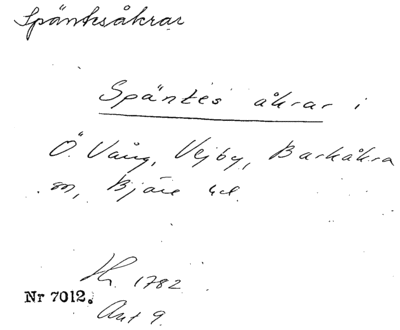 Spänksåkrar
Späntes åkrar i
Ö. Vång, Vejby, Barkåkra
sn, Bjäre hd.
Nr 7012.
1782
Akt 9.